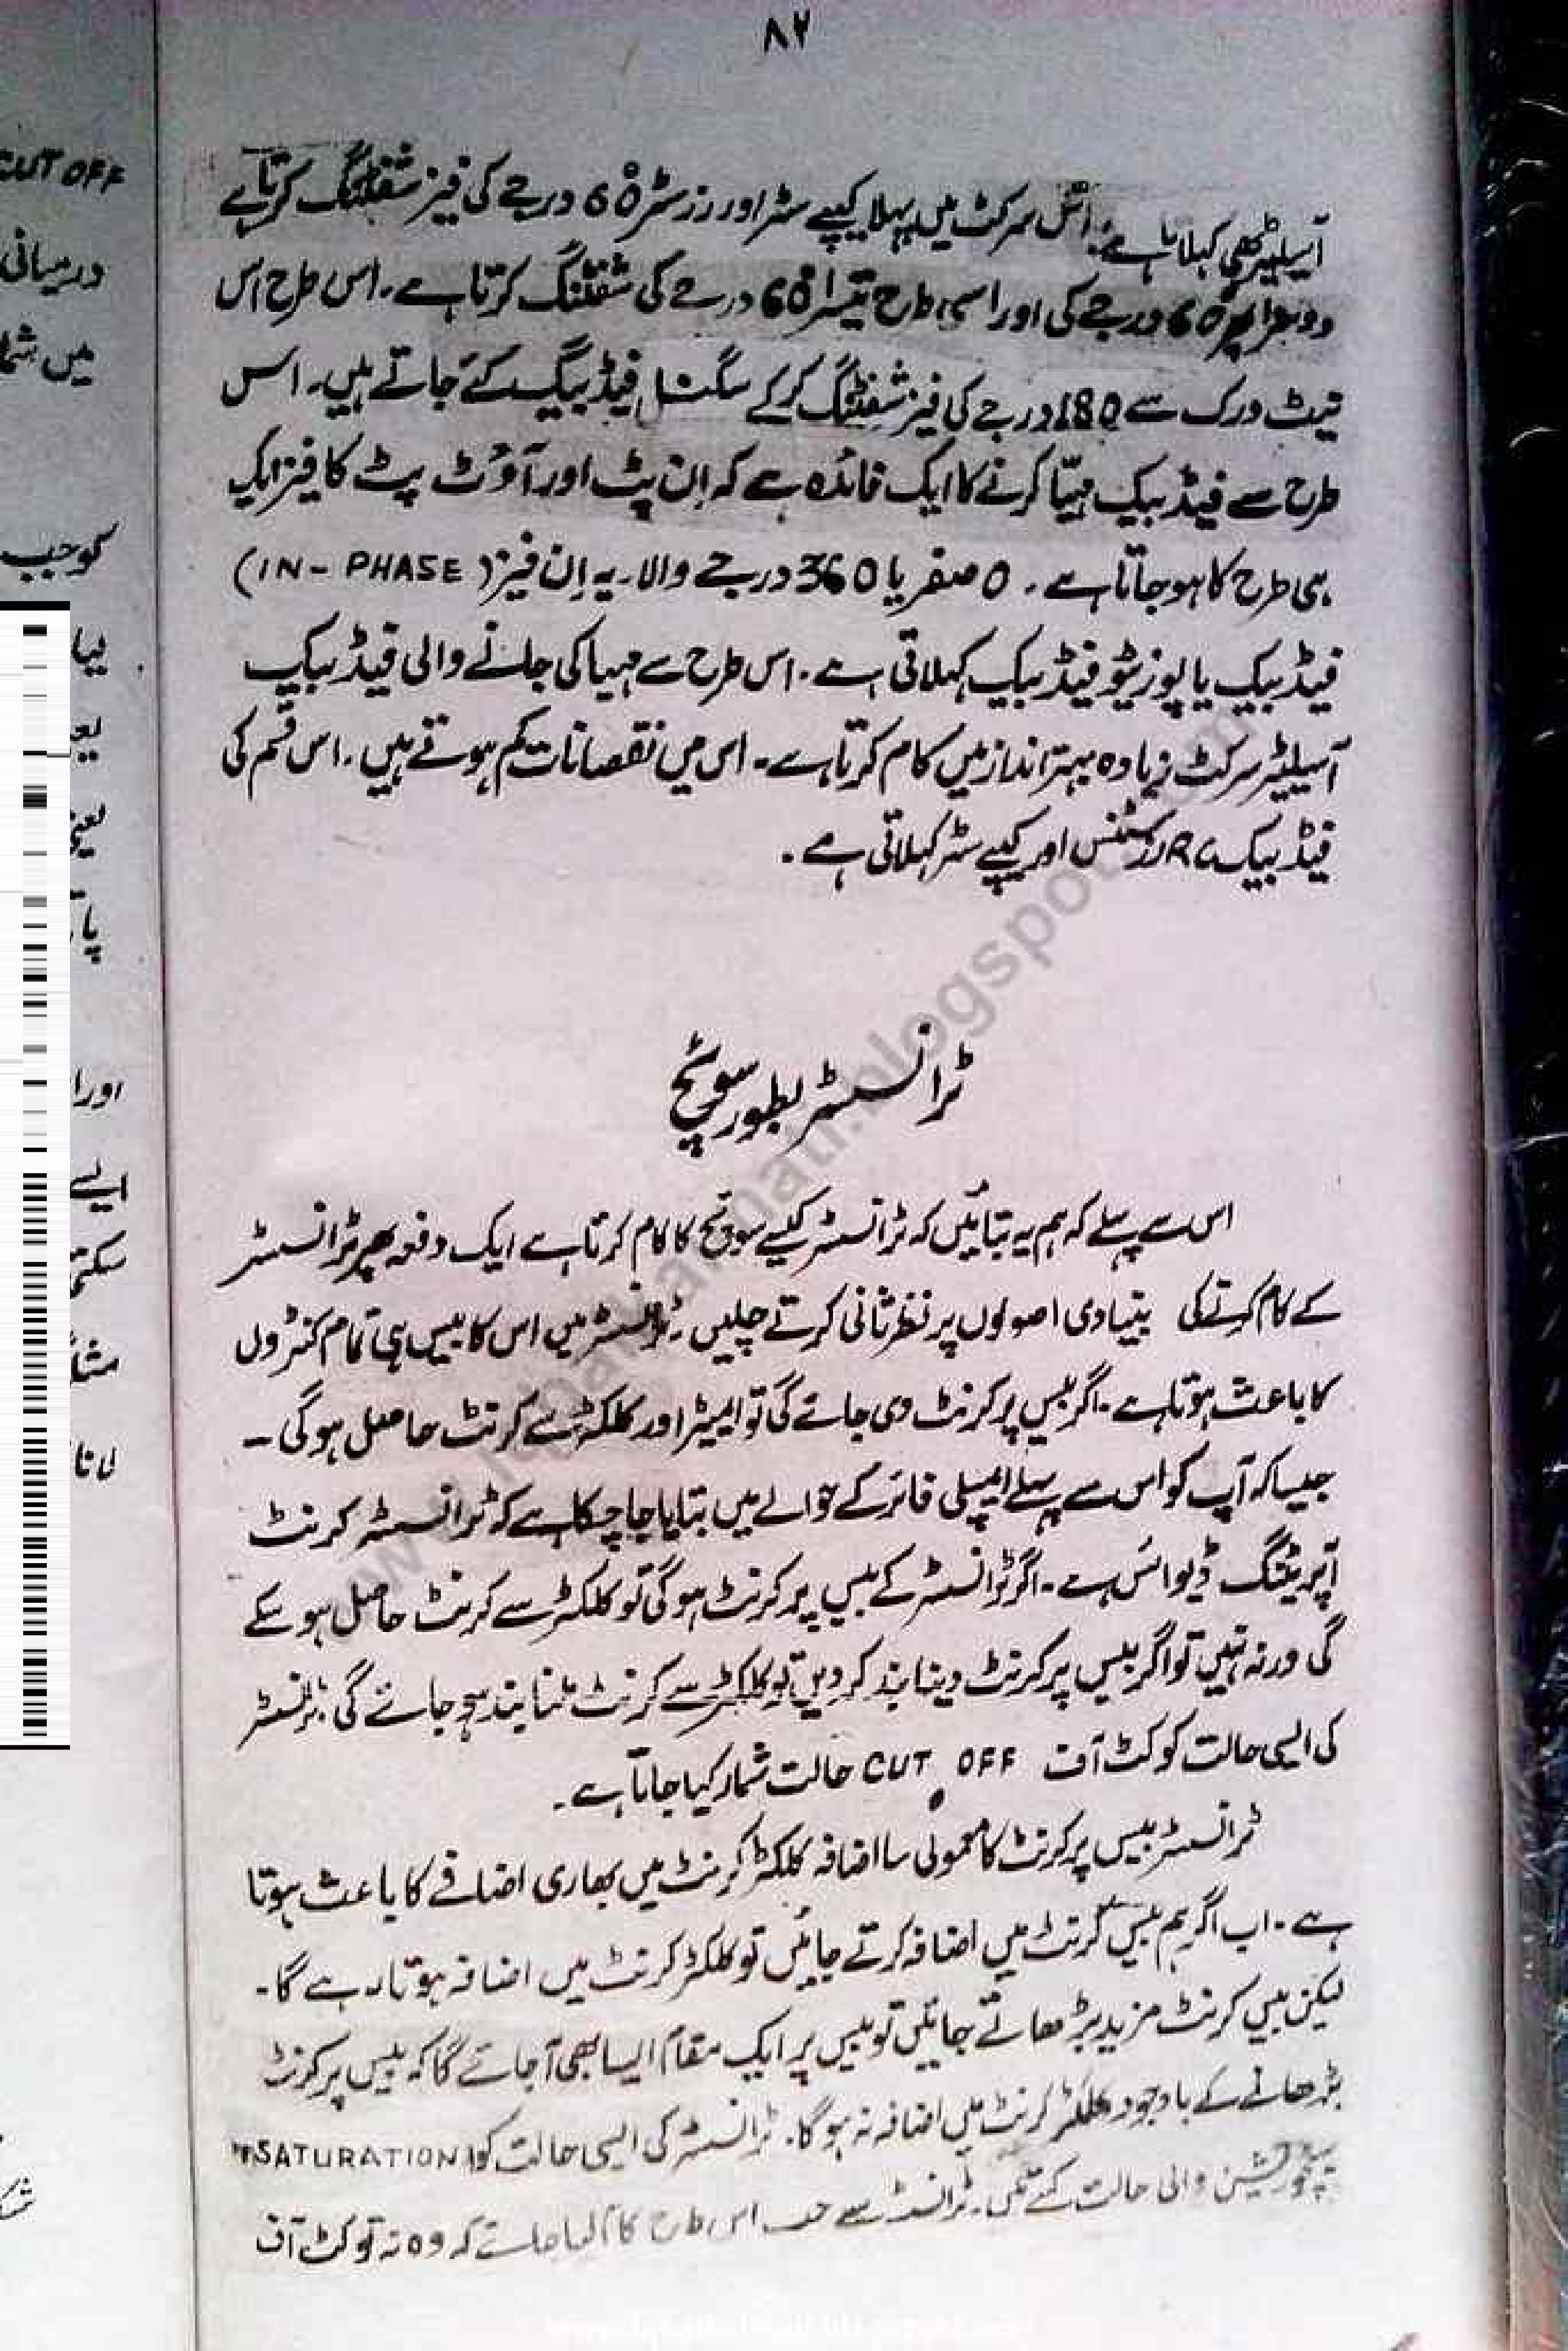 ۸۲
آسیلیٹر بھی کہلاتا ہے۔ اس سرکٹ میں پہلا کیپے سٹر اور رزسٹر 60 درجے کی فیز شفٹنگ کرتا ہے
دوسرا پھر 60 درجے کی اور اسی طرح تیسرا 60 درجے کی شفٹنگ کرتا ہے۔ اس طرح اس
نیٹ ورک سے 180 درجے کی فیز شفٹنگ کر کے سگنل فیڈ بیک کئے جاتے ہیں۔ اس
طرح سے فیڈ بیک مہیّا کرنے کا ایک فائدہ ہے کہ اِن پٹ اور آؤٹ پٹ کا فیز ایک
ہی طرح کا ہو جاتا ہے۔ 0 صفر یا 360 درجے والا۔ یہ اِن فیز (IN-PHASE)
فیڈ بیک یا پوزیٹو فیڈ بیک کہلاتی ہے۔ اس طرح سے مہیا کی جانے والی فیڈ بیک
آسیلیٹر سرکٹ زیادہ بہتر انداز میں کام کرتا ہے۔ اس میں نقصانات کم ہوتے ہیں۔ اس قسم کی
فیڈ بیک RC رزسٹنس اور کیپے سٹر کہلاتی ہے۔
ٹرانسسٹر بطور سوئچ
اس سے پہلے کہ ہم یہ بتائیں کہ ٹرانسسٹر کیسے سوئچ کا کام کرتا ہے ایک دفعہ پھر ٹرانسسٹر
کے کام کرنے کی بنیادی اصولوں پر نظر ثانی کرتے چلیں۔ ٹرانسسٹر میں اس کا بیس ہی تمام کنٹرول
کا باعث ہوتا ہے۔ اگر بیس پر کرنٹ دی جائے گی تو ایمیٹر اور کلکٹر سے کرنٹ حاصل ہوگی۔
جیسا کہ آپ کو اس سے پہلے ایمپلی فائر کے حوالے میں بتایا جا چکا ہے کہ ٹرانسسٹر کرنٹ
آپریٹنگ ڈیوائس ہے۔ اگر ٹرانسسٹر کے بیس پر کرنٹ ہوگی تو کلکٹر سے کرنٹ حاصل ہو سکے
گی ورنہ نہیں تو اگر بیس پر کرنٹ دینا بند کر دیں تو کلکٹر سے کرنٹ ملنا بند ہو جائے گی۔ ٹرانسسٹر
کی ایسی حالت کو کٹ آف CUT OFF حالت شمار کیا جاتا ہے۔
ٹرانسسٹر بیس پر کرنٹ کا معمولی سا اضافہ کلکٹر کرنٹ میں بھاری اضافے کا باعث ہوتا
ہے۔ اب اگر ہم بیس کرنٹ میں اضافہ کرتے جائیں تو کلکٹر کرنٹ میں اضافہ ہوتا رہے گا۔
لیکن بیس کرنٹ مزید بڑھاتے جائیں تو بیس پر ایک مقام ایسا بھی آ جائے گا کہ بیس پر کرنٹ
بڑھانے کے باوجود کلکٹر کرنٹ میں اضافہ نہ ہوگا۔ ٹرانسسٹر کی ایسی حالت کو (SATURATION)
سیچوریشن والی حالت کہتے ہیں۔ ٹرانسسٹر سے جب اس طرح کا کام لیا جائے کہ وہ نہ تو کٹ آف
CUT OFF
درمیانی
میں شما
کو جب
اورا
ایسے
سکتی
لانا